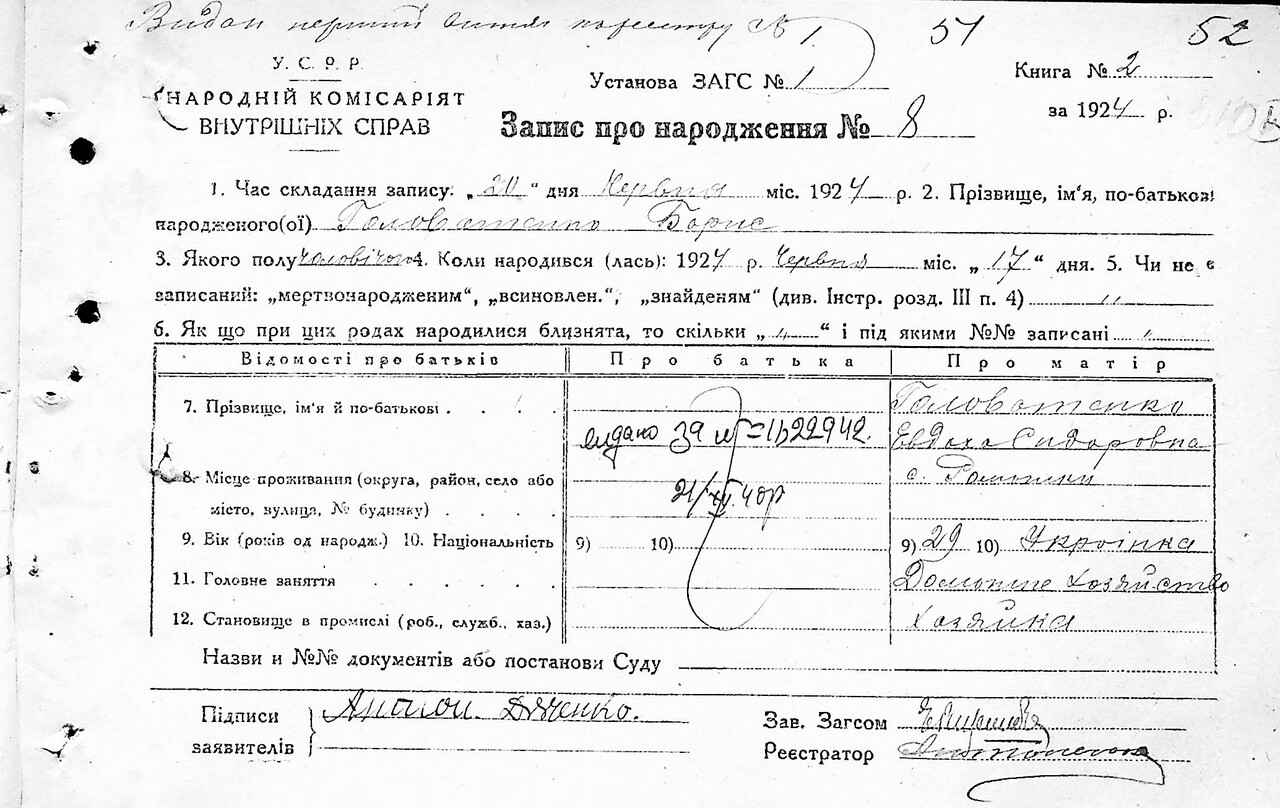 Видан перший витяг по реєстру № 1.
51 52
У. С. Р. Р.
НАРОДНІЙ КОМІСАРІЯТ
ВНУТРІШНІХ СПРАВ
Установа ЗАГС № 1
Книга № 2
за 1924 р.
Запис про народження № 8
1. Час складання запису: „20“ дня Червня міс. 1924 р. 2. Прізвище, ім‘я, по-батькові
народженого(ої) Головатенко Борис
3. Якого полу чоловічого 4. Коли народився (лась): 1924 р. Червня міс. „17“ дня. 5. Чи не є
записаний: „мертвонародженим“, „всиновлен.“, „знайденям“ (див. Інстр. розд. III п. 4) „
6. Як що при цих родах народилися близнята, то скільки „ „ “ і під якими №№ записані „
Відомості про батьків Про батька Про матір
7. Прізвище, ім‘я й по-батькові . . . . Головатенко
Евдоха Сидоровна
8. Місце проживання (округа, район, село або с.
місто, вулиця, № будинку) . . . .
9. Вік (років од народж.) 10. Національність 9) 10) 9) 29 10) Украінка
11. Головне заняття . . . . . . Домашне хозяйство
12. Становище в промислі (роб., служб., хаз.) Хозяйка
видано 39 1222942.
21/ 40р
Назви и №№ документів або постанови Суду
Підписи
заявителів
Дяченко.
Зав. Загсом
Реєстратор